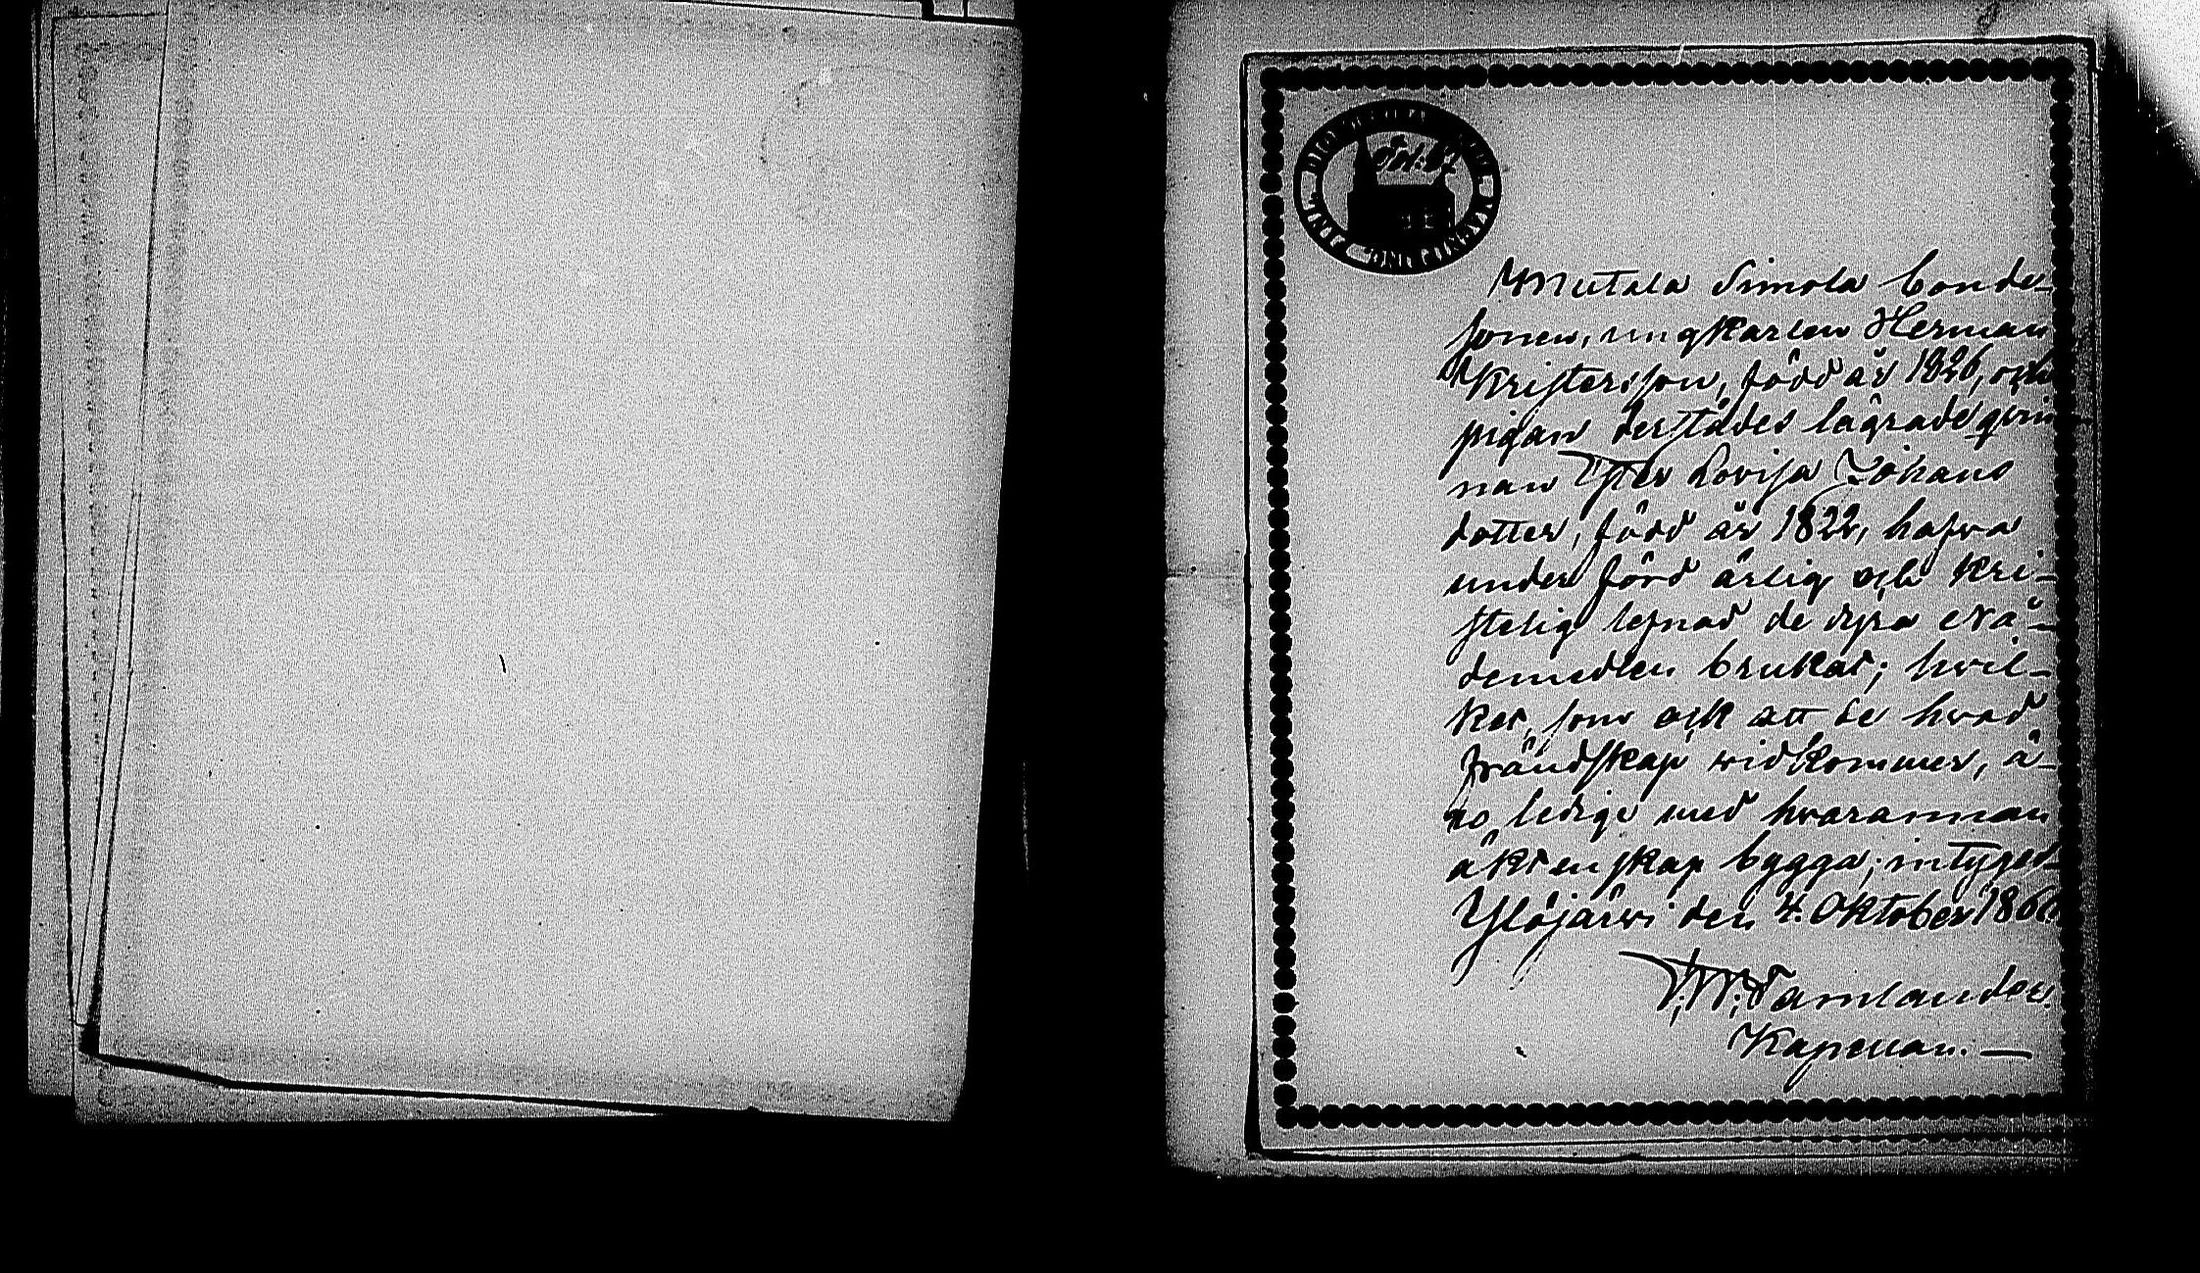 Mutala Simola bonde-
sonen, ungkarlen Herman
Kristersson, född år 1826, och
pigan derstädes lägrade qvin
nan Lovisa Johans
dotter, född år 1822, hafva
under förd ärlig och kri-
stelig lefnad de dyra nå-
demedlen brukat; hvil-
ket, som ock att de hvad
frändskap vidkommer, ä-
ro ledige med hvarannan
äktenskap bygga, intygar
Ylöjärvi den 4. Oktober
Kapellan. —